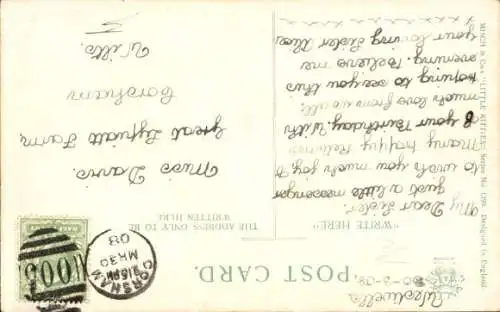 POST CARD.
"WRITE HERE"
THE ADDRESS ONLY TO BE
WRITTEN HERE
30-3-08
My Dear Sister,
Just a little messenger
to wish you much joy &
Many happy Returns
of your Birthday. With
much love from us all,
hoping to see you this
evening. Believe me
your loving Sister Alice
x x x x x x
Miss Davis.
Great Lypiatt Farm,
Corsham
Wilts.
CORSHAM
MR 30
08
"LITTLE KITTIES" Series No. 1298. Designed in England